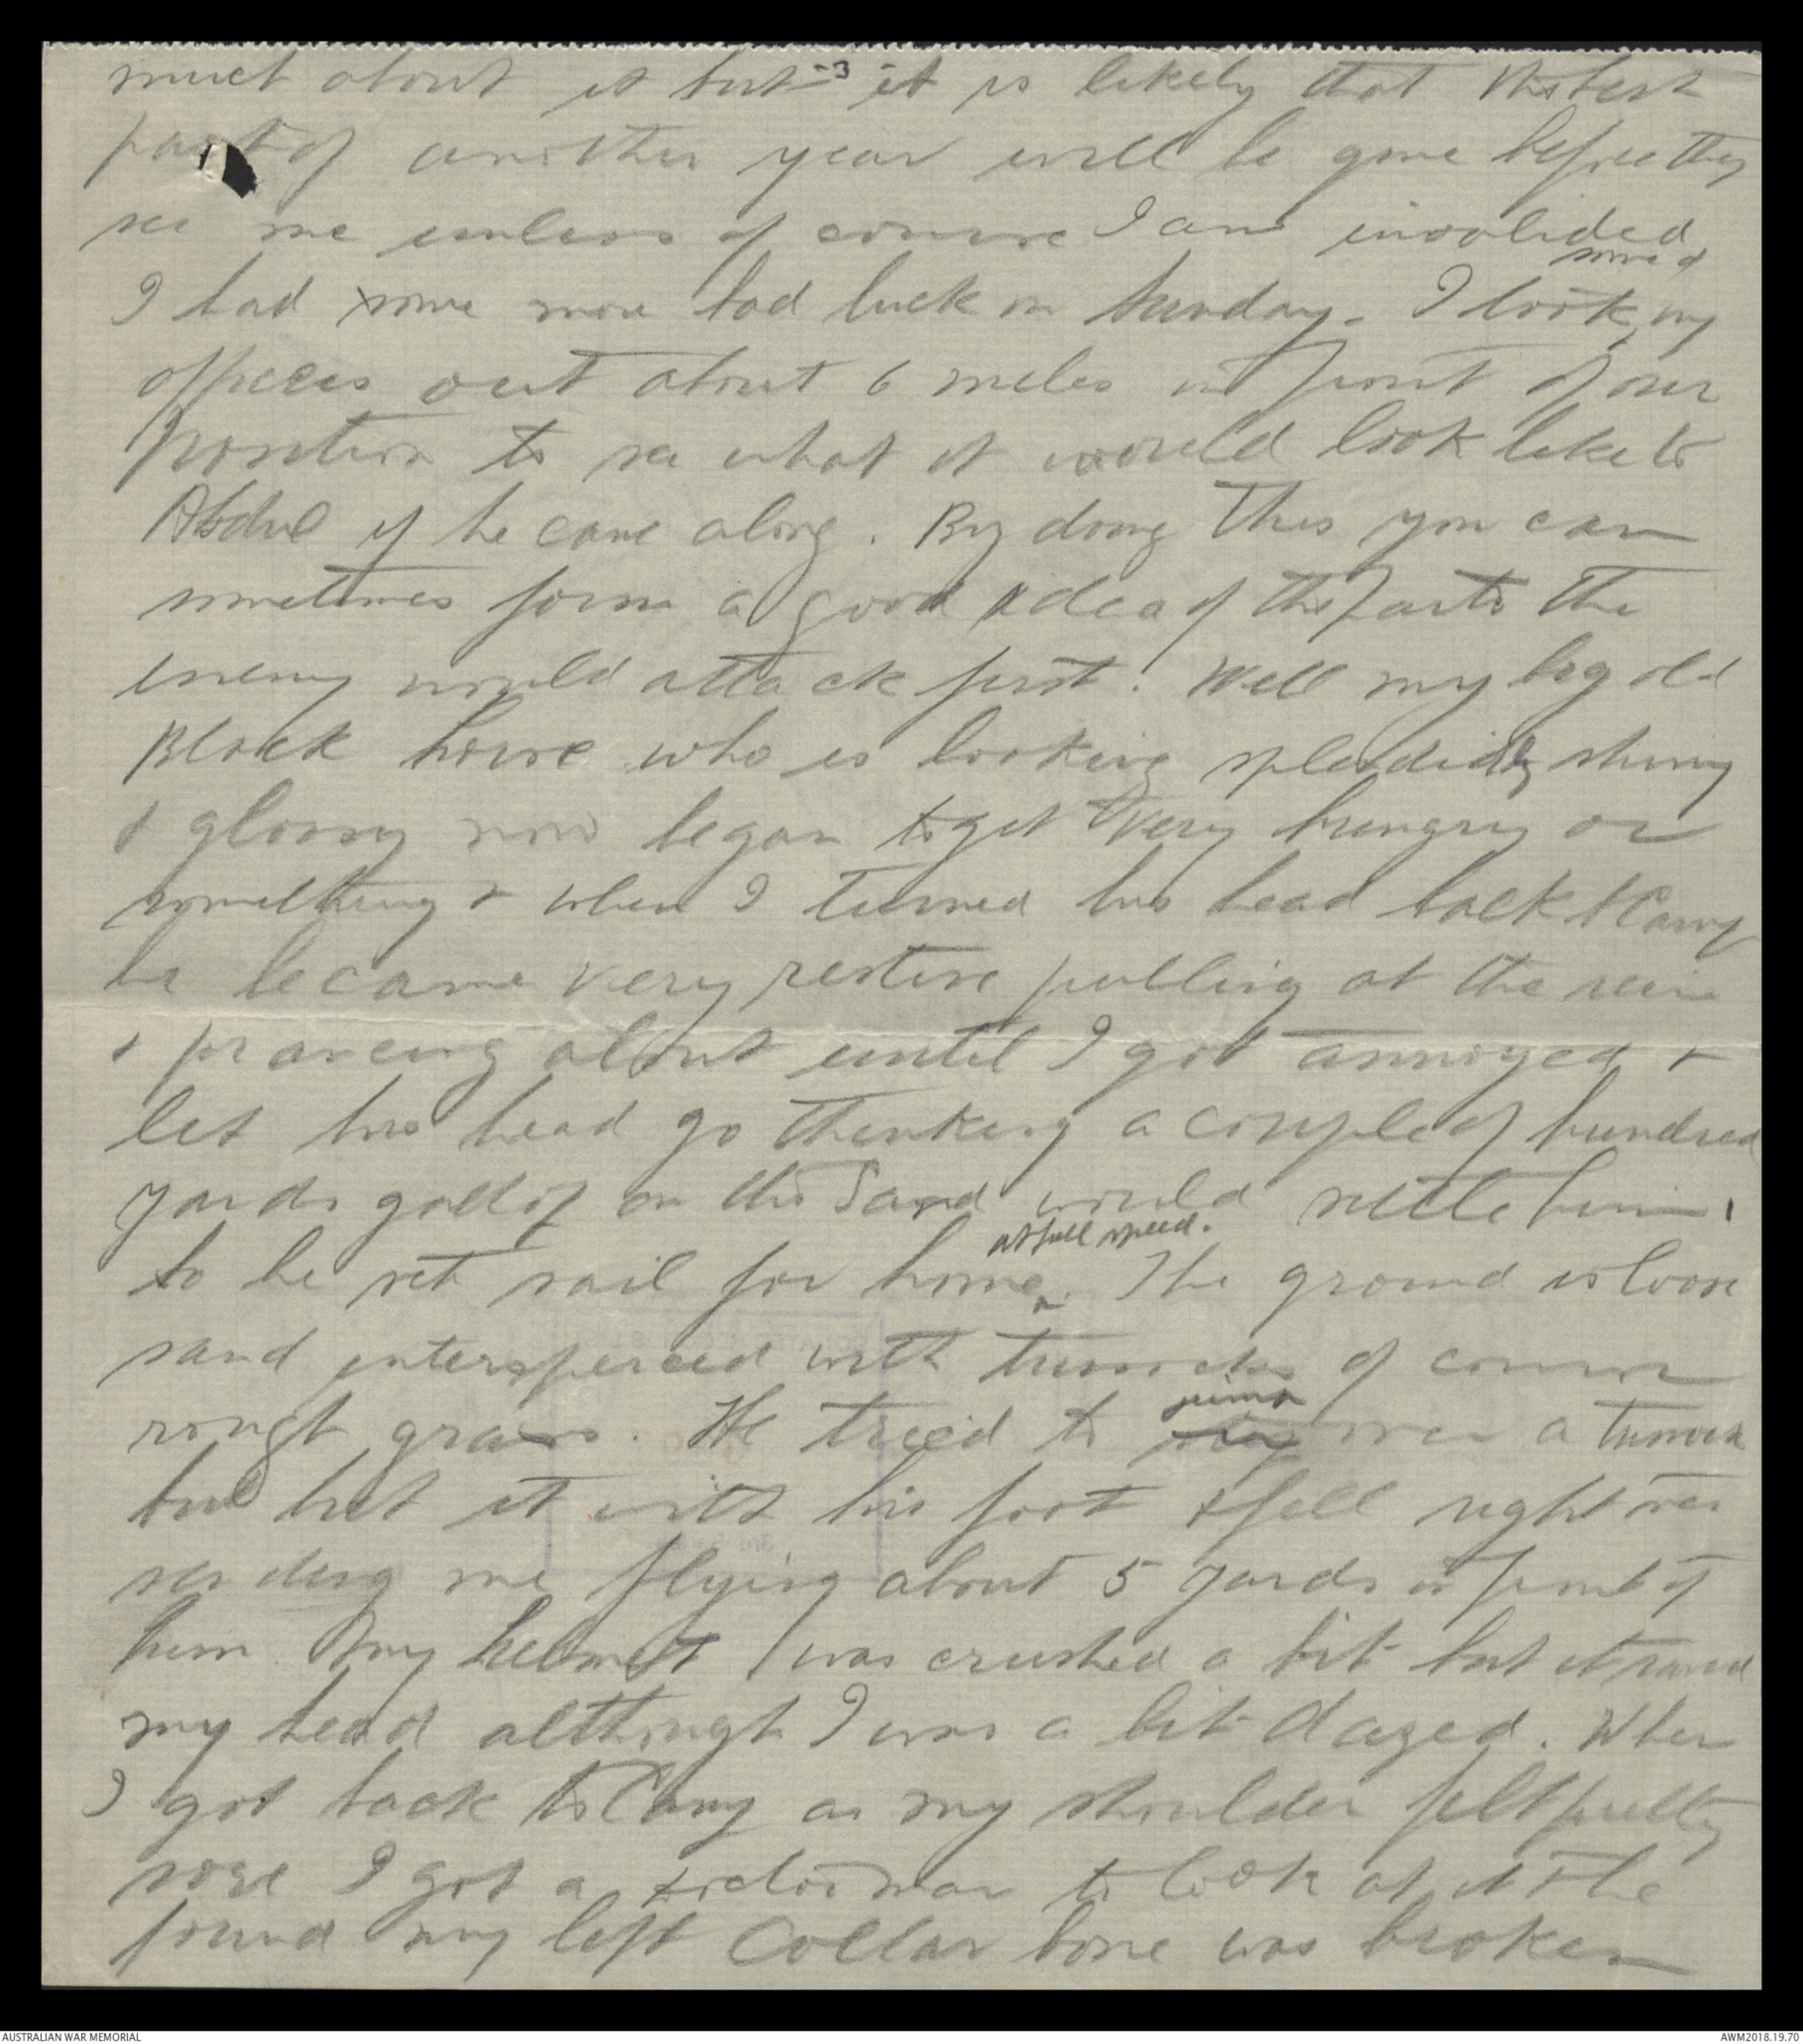 -3-
much about it but it is likely that the best
part of another year will be gone before they
see me unless of course I am invalided
I had some more bad luck on Sunday. I took some of my
officers out about 6 miles in front of our
position to see what it would look like to
Abdul if he came along. By doing this you can
sometimes form a good idea of the parts the
enemy would attack first. Well my big old
Black horse who is looking splendidly shiny
& glossy now began to get very hungry or
something & when I turned his head back to Camp
he became very restive pulling at the reins
& prancing about until I got annoyed &
let his head go thinking a couple of hundred
yards gallop on the Sand would settle him.
So he set sail for home at full speed. The ground is loose
sand interspersed with tussocks of coarse
rough grass. He tried to jump over a tussock
but hit it with his foot & fell right over
sending me flying about 5 yards in front of
him. My helmet was crushed a bit but it saved
my head although I was a bit dazed. When
I got back to Camp as my shoulder felt pretty
sore I got a doctor man to look at it & he
found my left Collar bone was broken
AUSTRALIAN WAR MEMORIAL
AWM2018.19.70